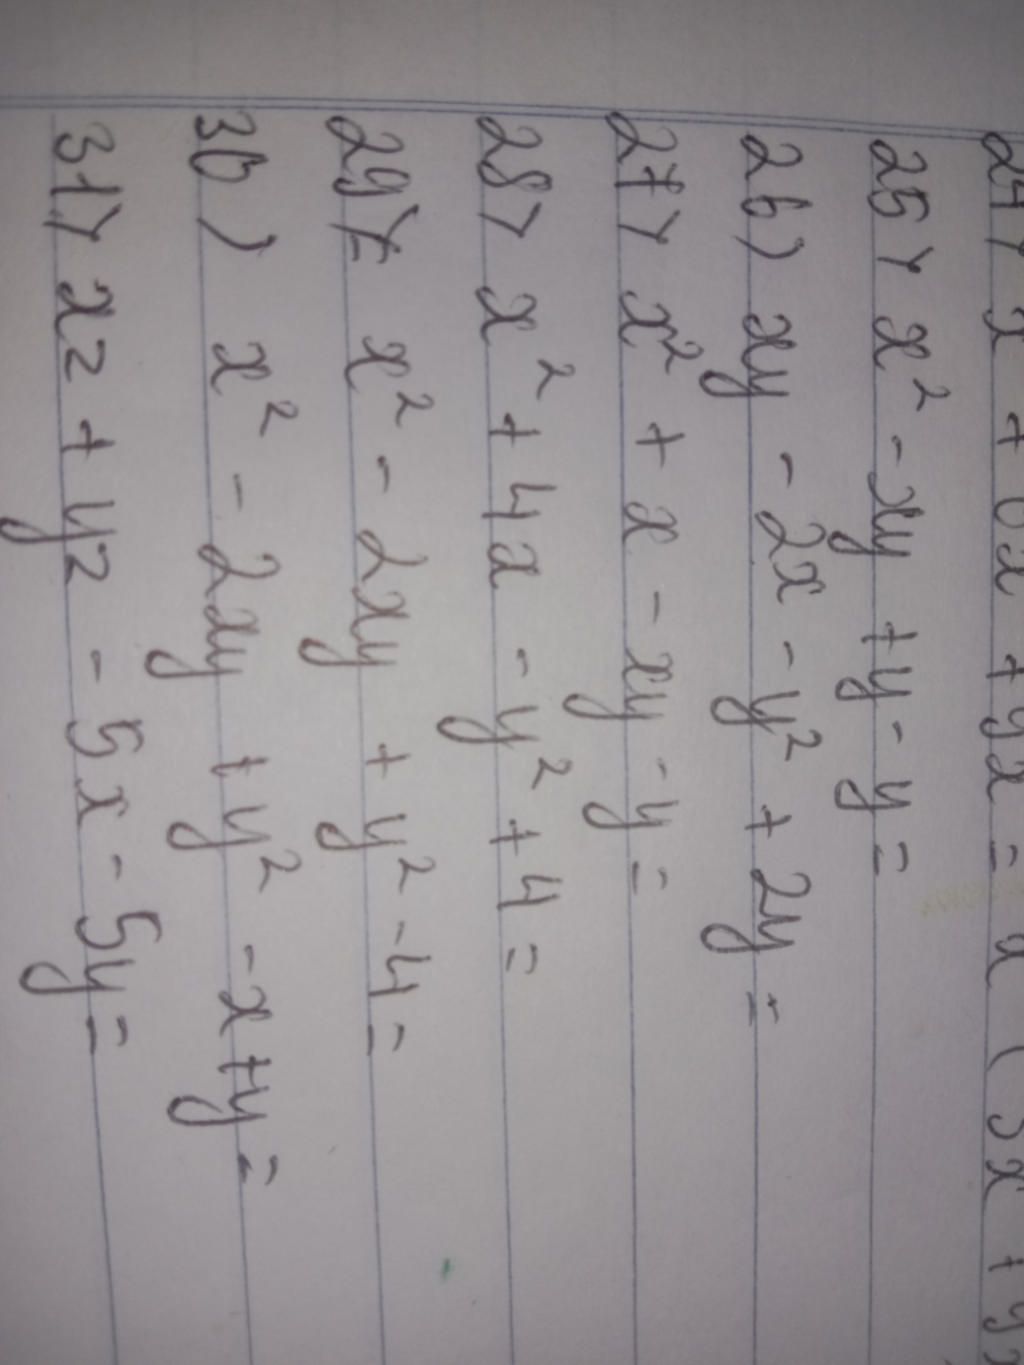 24) x + 6x + yx = x (
25) x² - xy + y - y =
26) xy - 2x - y² + 2y =
27) x² + x - xy - y =
28) x² + 4x - y² + 4 =
29) x² - 2xy + y² - 4 =
30) x² - 2xy + y² - x + y =
31) xz + yz - 5x - 5y =